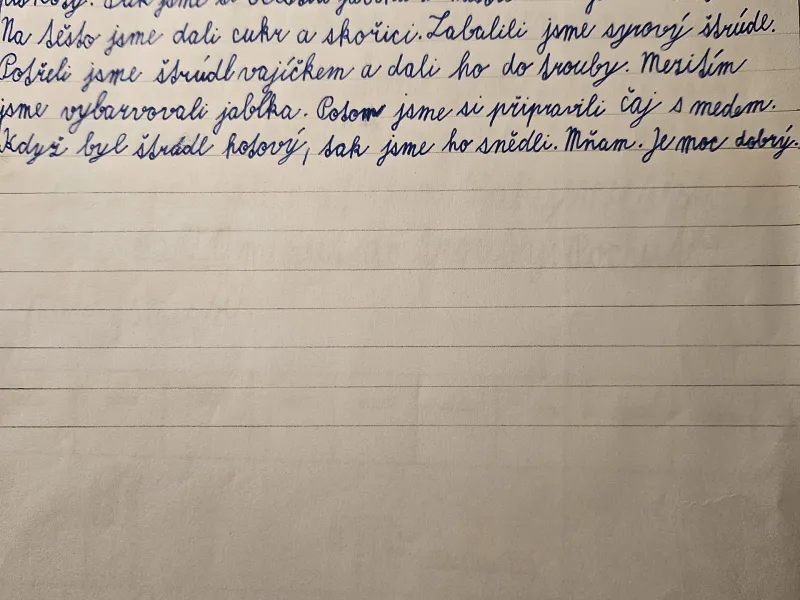 Tak jsme si
Na těsto jsme dali cukr a skořici. Zabalili jsme syrový štrúdl.
Potřeli jsme štrúdl vajíčkem a dali ho do trouby. Mezitím
jsme vybarvovali jablka. Potom jsme si připravili čaj s medem.
Když byl štrúdl hotový, tak jsme ho snědli. Mňam. Je moc dobrý.